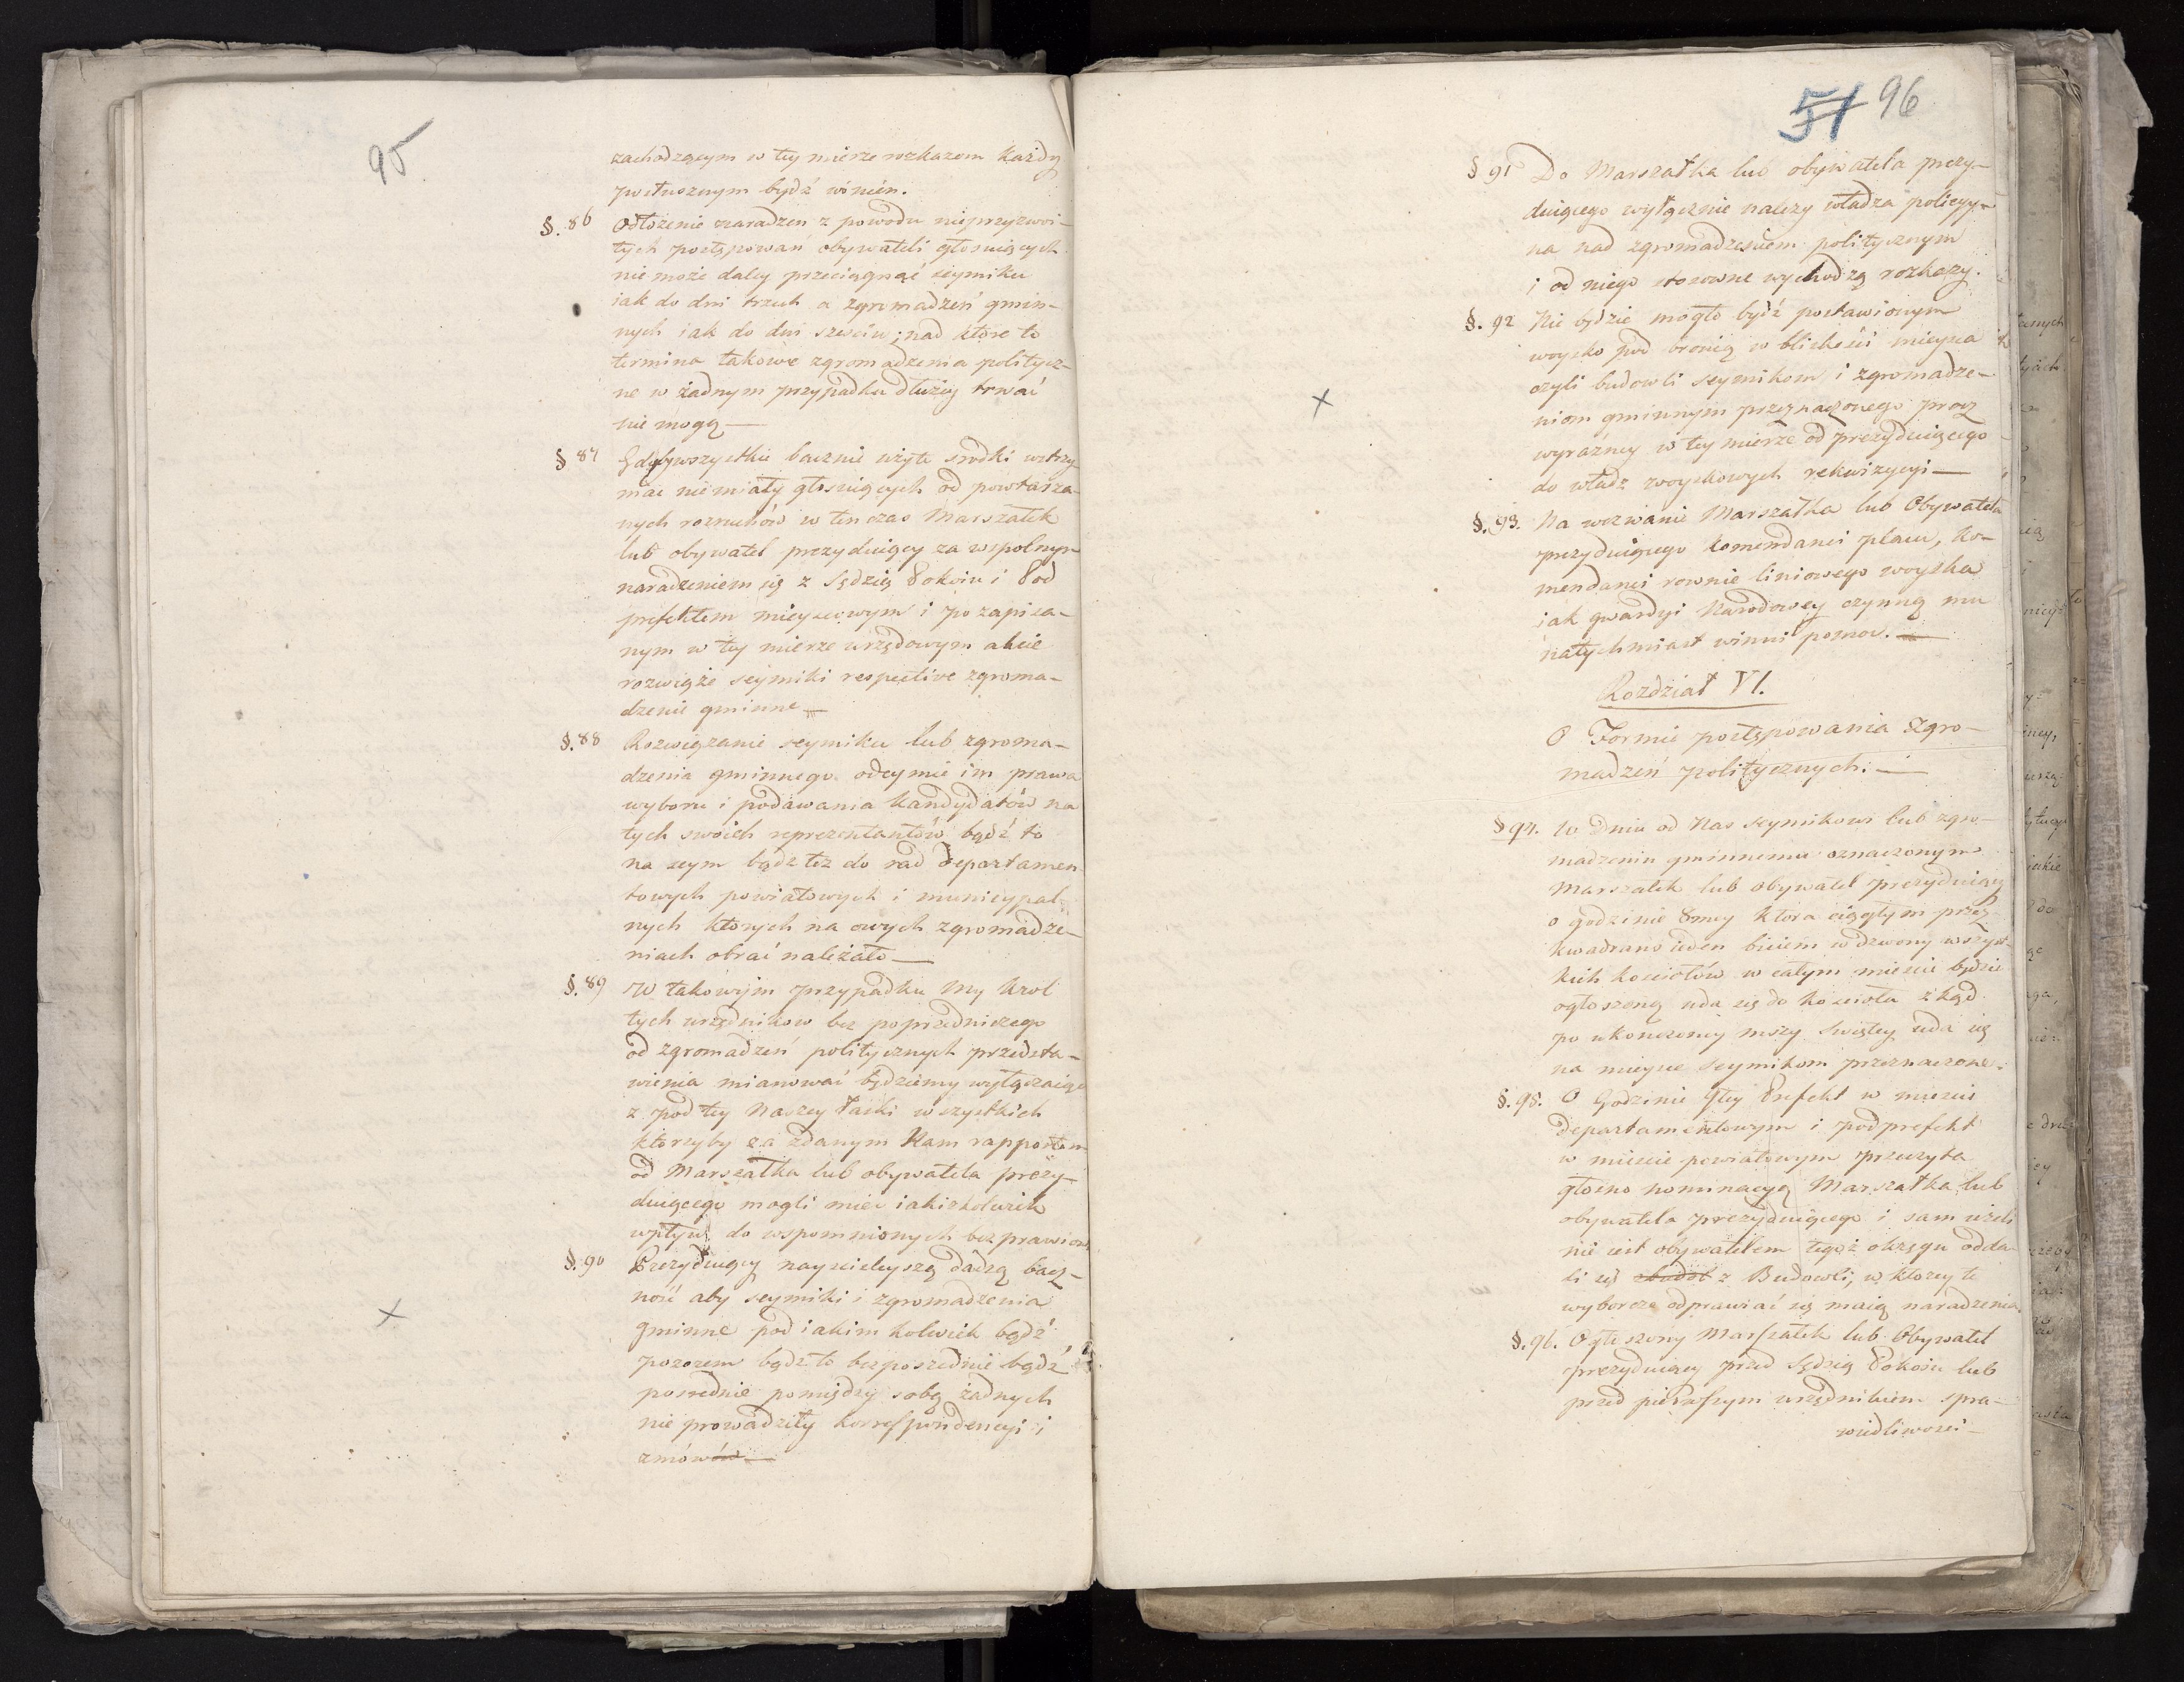 95
zachodzącym w tey mierze rozkazom każdy
posłusznym bydź winien.
§. 86 Odłożenie naradzen z powodu nieprzyzwoi-
tych postępowań obywateli głosuiących
nie może daley przeciągnąć seymiku
iak do dni trzech a zgromadzeń gmin-
nych iak do dni sześciu; nad które to
termina takowe zgromadzenia politycz-
ne w żadnym przypadku dłużey trwać
nie mogą —
§ 87 Gdyby wszystkie bacznie użyte srodki wstrzy-
mać nie miały głosuiących od powtarza-
nych rozruchów w ten czas Marszałek
lub obywatel prezyduiący za wspolnym
naradzeniem się z Sędzią Pokoiu i Pod
prefektem mieyscowym i po zapisa-
nym w tey mierze urzędowym akcie
rozwiąże seymiki respective zgroma-
dzenie gminne —
§. 88 Rozwiązanie seymiku lub zgroma-
dzenia gminnego odeymie im prawa
wyboru i podawania kandydatów na
tych swoich reprezentantów bądź to
na seym bądz też do rad departamen
towych powiatowych i municypal-
nych których na owych zgromadze-
niach obrać należało —
§. 89 W takowym przypadku My Krol
tych urzędnikow bez poprzedniczego
od zgromadzeń politycznych przedsta-
wienia mianować będziemy wyłączaiąc
z pod tey Naszey łaski wszystkich
ktorzyby za zdanym Nam rapportem
od Marszałka lub obywatela prezy-
duiącego mogli mieć iakiżkolwiek
wpływ do wspomnionych bezprawiow
§. 90 Prezyduiący nayscisleyszą dadzą bacz-
ność aby seymiki i zgromadzenia
gminne pod iakim kolwiek bądź
pozorem bądz to bezpośrednie bądź
posrednie pomiędzy sobą żadnych
nie prowadziły korrespondencyi i
zmówów —
51 96
§ 91 Do Marszałka lub obywatela prezy-
duiącego wyłącznie należy władza policyy-
na nad zgromadzeniem politycznym
i od niego stosowne wychodzą rozkazy.
§. 92 Nie będzie mogło bydź postawionym
woysko pod bronią w bliskości mieysca
czyli budowli seymikom i zgromadze-
niom gminnym przeznaczonego procz
wyraźney w tey mierze od prezyduiącego
do władz woyskowych rekwizycyi —
§. 93. Na wezwanie Marszałka lub Obywatela
prezyduiącego komendanci placu, ko-
mendanci rownie liniowego woyska
iak gwardyi Narodowey czynną mu
natychmiast winni pomoc. —
Rozdział VI.
O Formie postępowania Zgro-
madzeń politycznych. —
§ 94. W Dniu od Nas seymikowi lub zgro-
madzeniu gminnemu oznaczonym
Marszałek lub obywatel prezyduiący
o godzinie 8mey ktora ciągłym przez
kwadrans ieden biciem w dzwony wszyst-
kich kosciołów w całym miescie będzie
ogłoszoną uda się do kościoła z kąd
po ukonczoney mszy świętey uda się
na mieysce seymikom przeznaczone.
§. 95. O Godzinie 9tey Prefekt w miescie
departamentowym i podprefekt
w miescie powiatowym przeczyta
głośno nominacyą Marszałka lub
obywatela prezyduiącego i sam ieżeli
nie iest obywatelem tegoż okręgu odda-
li się z Budowli, w ktorey te
wyborcze odprawiać się maią naradzenia.
§. 96. Ogłoszony Marszałek lub Obywatel
prezyduiący przed Sędzią Pokoiu lub
przed pierwszym urzędnikiem spra-
wiedliwości —